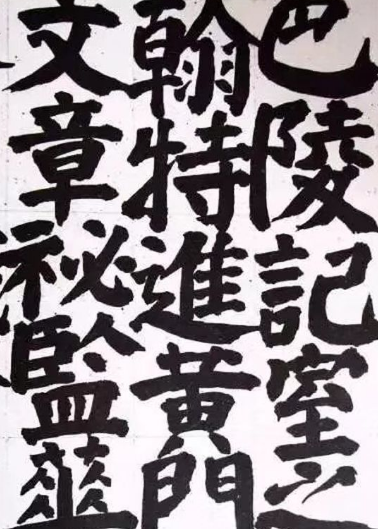 巴陵記室之
翰特進黃門
文章祕監